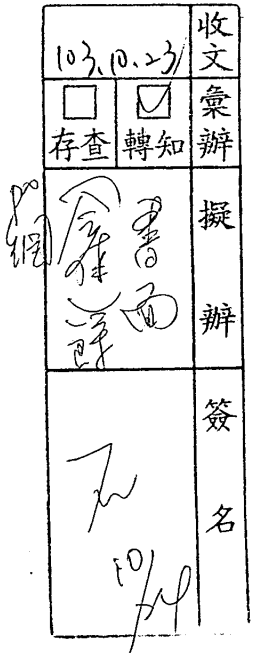 收文
103.10.23
彙辦
轉知
存查
擬辦
書面
簽名
10/24